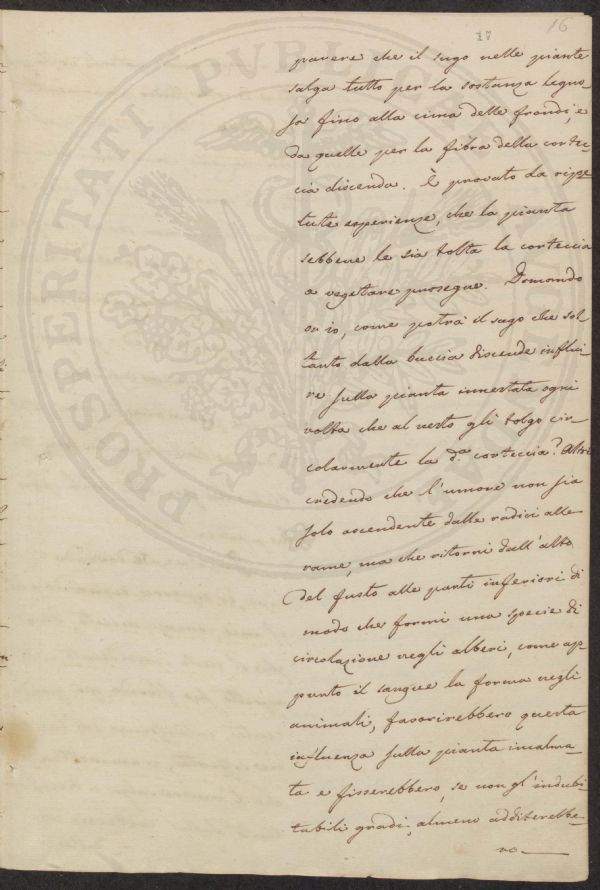 17 16
parere che il sugo nelle piante
salga tutto per la sostanza legno-
sa fino alla cima delle frondi, e
da quelle per la fibra della cortec-
cia discenda. È provato da ripe-
tute esperienze, che la pianta
sebbene le sia tolta la corteccia
a vegetare prosegue. Domando
or io, come potrà il sugo che sol-
tanto dalla buccia discende influi-
re sulla pianta innestata ogni
volta che al nesto gli tolgo cir-
colarmente la d.a corteccia? Altri
credendo che l'umore non sia
solo ascendente dalle radici alle
rame, ma che ritorni dall'alto
del fusto alle parti inferiori di
modo che formi una specie di
circolazione negli alberi, come ap-
punto il sangue la forma negli
animali, favorirebbero questa
influenza sulla pianta incalma-
ta e fisserebbero, se non gl'indubi-
tabili gradi, almeno additerebbe-
ro
PROSPERITATI PVBLICAE